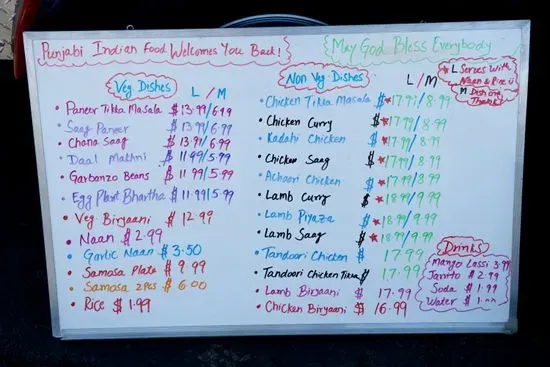 Punjabi Indian Food Welcomes You Back!
May God Bless Everybody
Veg Dishes L / M
Paneer Tikka Masala $ 13.99/6.99
Saag Paneer $ 13.99/6.99
Chana Saag $ 13.99/6.99
Daal Makhni $ 11.99/5.99
Garbonzo Beans $ 11.99/5.99
Egg Plant Bhartha $ 11.99/5.99
Veg Birjaani $ 12.99
Naan $ 2.99
Garlic Naan $ 3.50
Samosa Plate $ 9.99
Samosa 2pcs $ 6.00
Rice $ 1.99
Non Veg Dishes L / M
* L Serves With
Naan & Rice
M Dish only
Thanks!
Chicken Tikka Masala $ *17.99/8.99
Chicken Curry $ *17.99/8.99
Kadahi Chicken $ *17.99/8.99
Chicken Saag $ *17.99/8.99
Achaari Chicken $ *17.99/8.99
Lamb Curry $ *18.99/9.99
Lamb Piyaza $ *18.99/9.99
Lamb Saag $ *18.99/9.99
Tandoori Chicken $ 17.99
Tandoori Chicken Tikka $ 17.99
Lamb Birjaani $ 17.99
Chicken Biryaani $ 16.99
Drinks
Mango Lassi 3.99
Jarrito $ 2.99
Soda $ 1.99
Water $